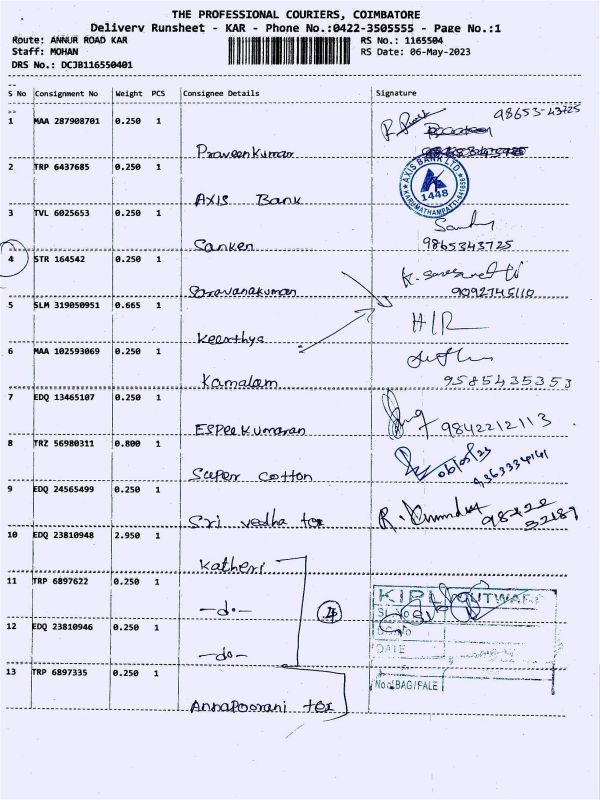 THE PROFESSIONAL COURIERS, COIMBATORE
Delivery Runsheet - KAR - Phone No.:0422-3505555 - Page No.:1
Route: ANNUR ROAD KAR RS No.: 1165504
Staff: MOHAN RS Date: 06-May-2023
DRS No.: DCJB116550401
S No Consignment No Weight PCS Consignee Details Signature
1 MAA 287908701 0.250 1 98653-43725
Praveenkumar
2 TRP 6437685 0.250 1
AXIS Bank
AXIS BANK LTD
1448
3 TVL 6025653 0.250 1
Sanken 9865343725
4 STR 164542 0.250 1
Saravanakumar 9092745110
5 SLM 319050951 0.665 1 H/R
Keerthya
6 MAA 102593069 0.250 1
Kamalam 9585435353
7 EDQ 13465107 0.250 1 9842212113
ESPEE Kumaran
8 TRZ 56980311 0.800 1 06/05/23
Super cotton 9363334141
9 EDQ 24565499 0.250 1
Sri vedha tex 98422
32189
10 EDQ 23810948 2.950 1
Katheri
11 TRP 6897622 0.250 1
-do- 4
12 EDQ 23810946 0.250 1
-do-
13 TRP 6897335 0.250 1
Annapoorani tex
KIPL OUTWARD
SL.No
DATE
No.of BAG/PALE